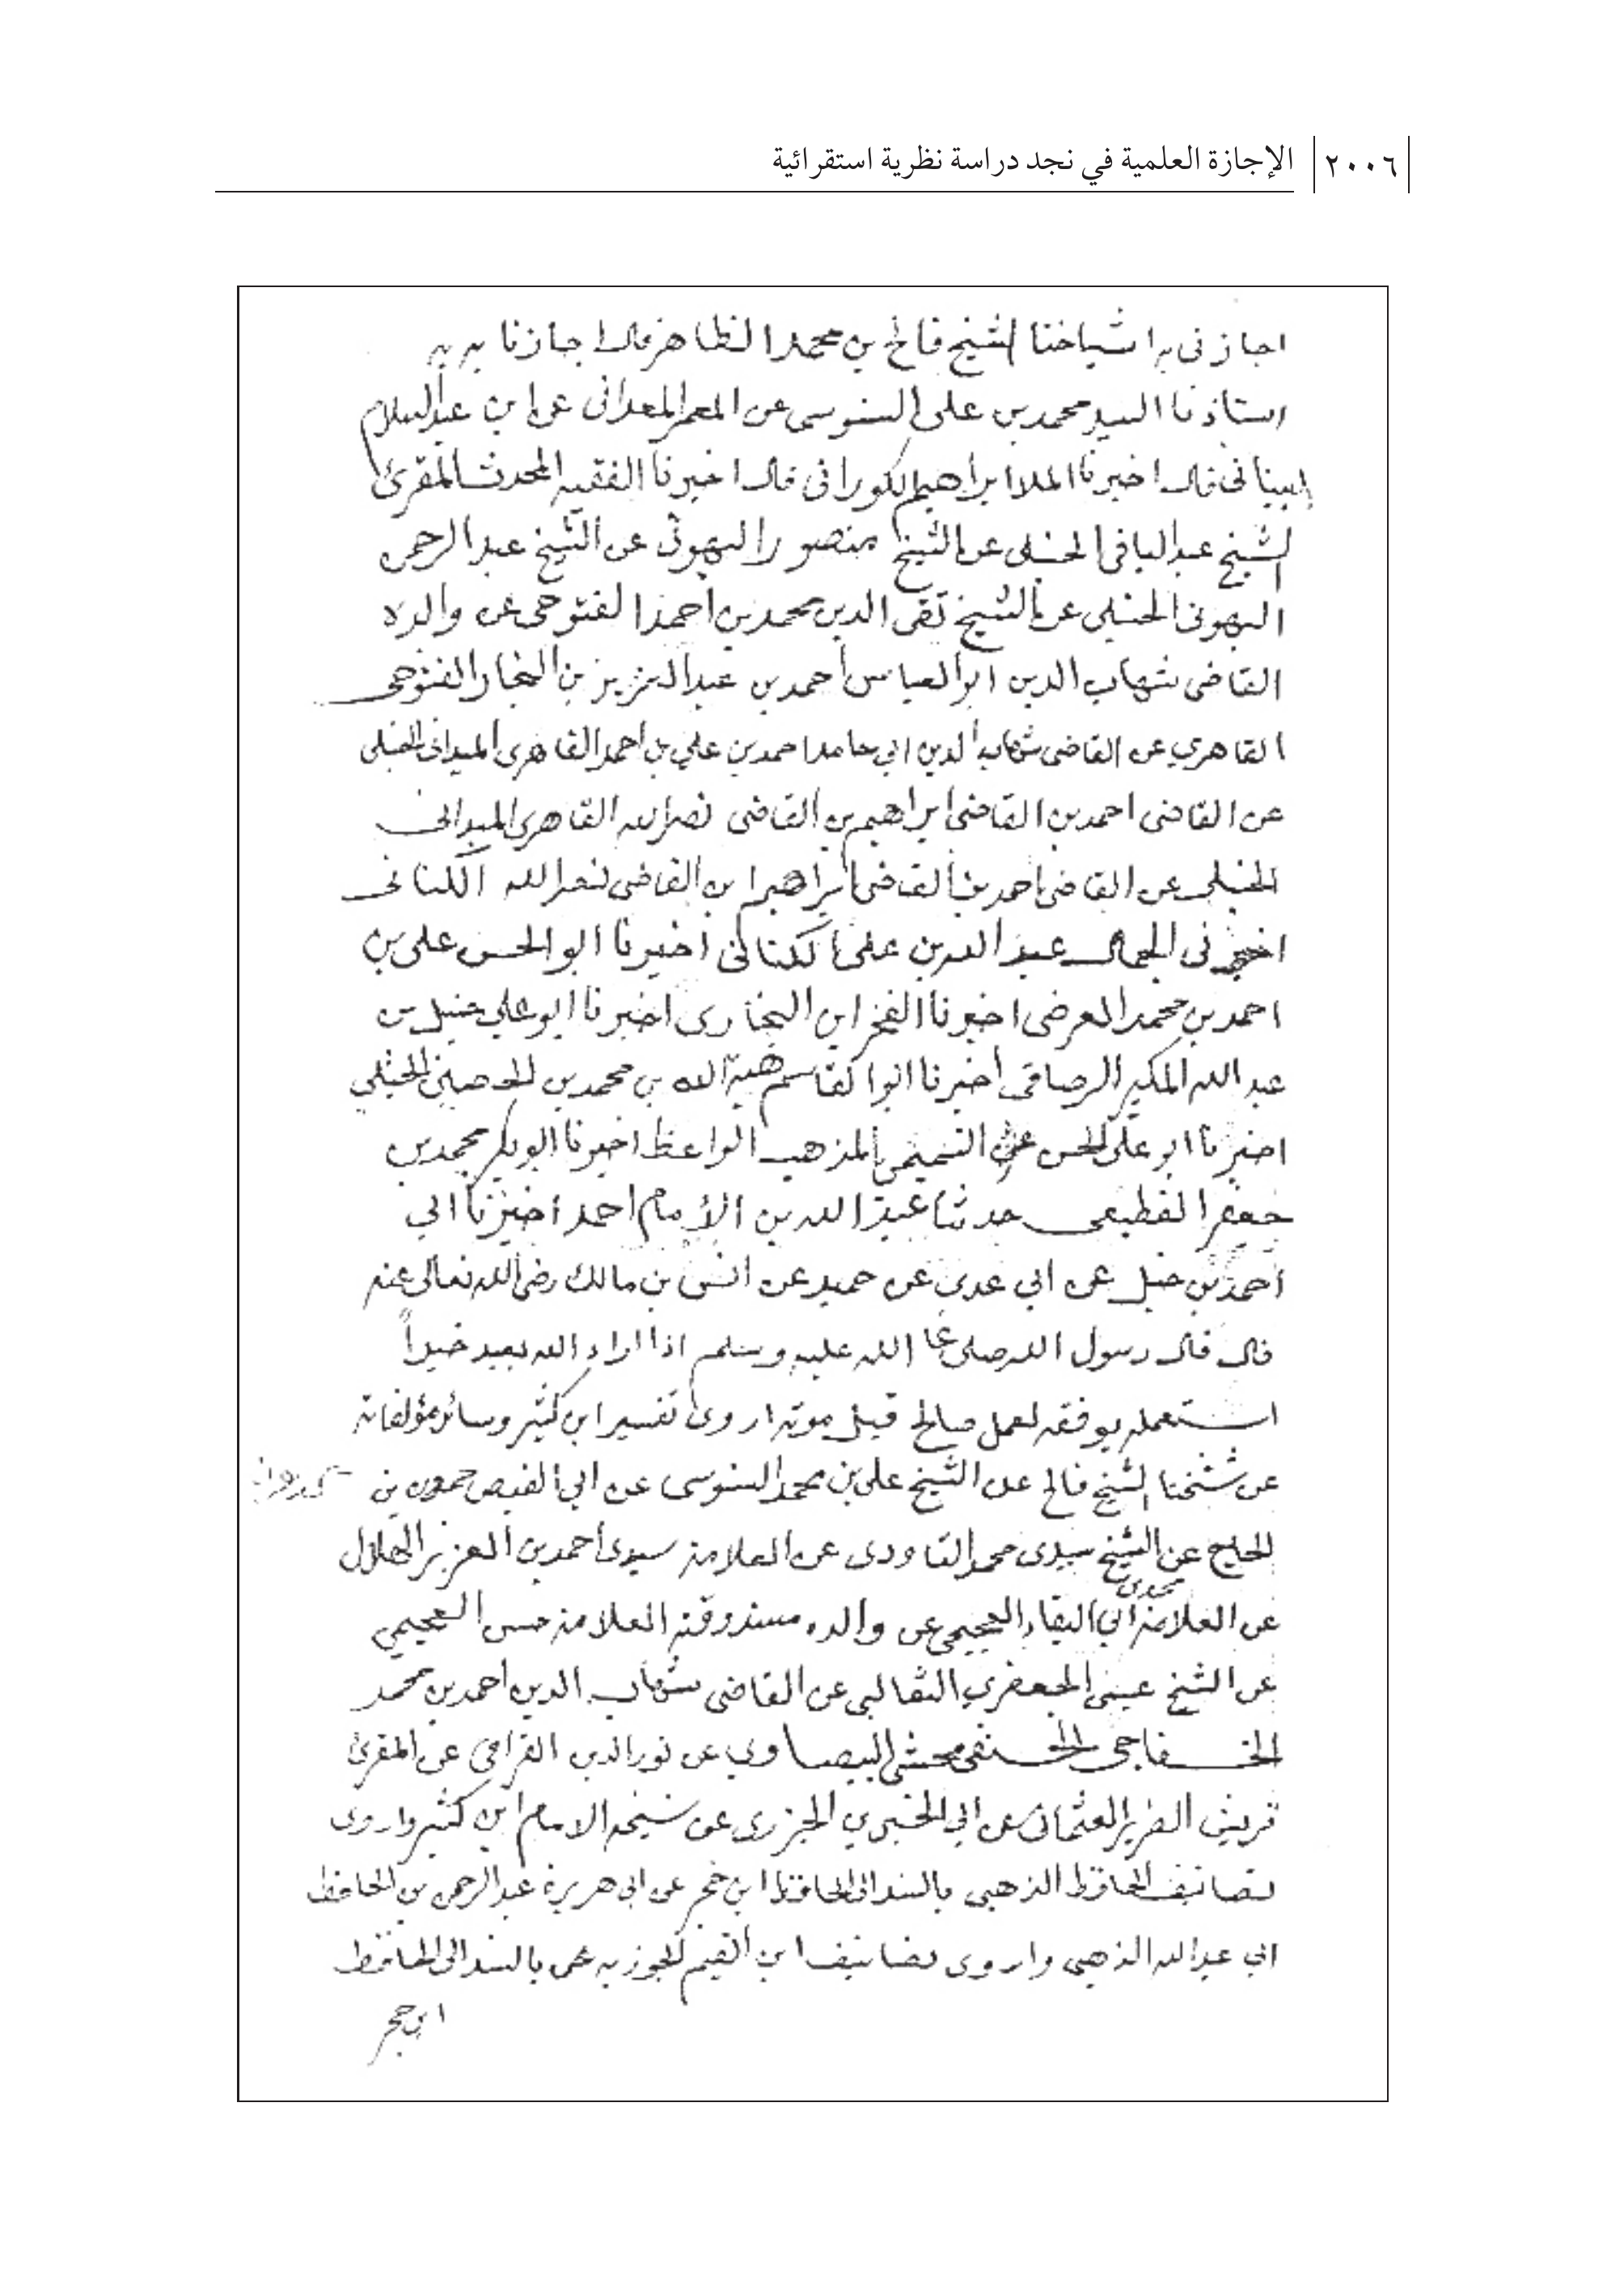 ٢٠٠٦ الإجازة العلمية في نجد دراسة نظرية استقرائية
اجازني به اشياخنا الشيخ فالح بن محمد الظاهر قال اجازنا به
استاذنا السيد محمد بن علي السنوسي عن المعمر المعداني عن ابن عبد السلام
البيناني قال اخبرنا الملا ابراهيم الكوراني قال اخبرنا الفقيه المحدث المقرئ
الشيخ عبد الباقي الحنبلي عن الشيخ منصور البهوتي عن الشيخ عبد الرحمن
البهوتي الحنبلي عن الشيخ تقي الدين محمد بن أحمد الفتوحي عن والده
القاضي شهاب الدين ابو العباس أحمد بن عبد العزيز بن النجار الفتوحي
القاهري عن القاضي شهاب الدين ابي حامد احمد بن علي بن احمد القاهري الميداني الحنبلي
عن القاضي احمد بن القاضي ابراهيم بن القاضي نصر الله القاهري الميداني
الحنبلي عن القاضي احمد بن القاضي ابراهيم ابن القاضي نصر الله الكناني
اخبرني الجمال عبد الله بن علي الكناني اخبرنا ابو الحسن علي بن
احمد بن محمد العرضي اخبرنا الفخر ابن البخاري اخبرنا ابو علي حنبل بن
عبد الله المكبر الرصافي أخبرنا ابو القاسم هبة الله بن محمد بن الحصين الحنبلي
اخبرنا ابو علي الحسن التميمي المذهب الواعظ اخبرنا ابو بكر محمد بن
جعفر القطيعي حدثنا عبد الله بن الإمام احمد اخبرنا ابي
أحمد بن حنبل عن ابي عدي عن حميد عن انس بن مالك رضي الله تعالى عنه
قال قال رسول الله صلى الله عليه وسلم اذا اراد الله بعبد خيراً
استعمله يوفقه لعمل صالح قبل موته اروى تفسير ابن كثير وسائر مؤلفاته
عن شيخنا الشيخ فالح عن الشيخ علي بن محمد السنوسي عن ابي الفيض حمدون بن
الحاج عن الشيخ سيدي محمد التاودي عن العلامة سيدي أحمد بن العزيز الهلال
عن العلامة ابي البقاء محمد بن العجيمي عن والده مسند وقته العلامة حسن العجيمي
عن الشيخ عيسى الجعفري الثعالبي عن القاضي شهاب الدين احمد بن محمد
الخفاجي الحنفي محشي البيضاوي عن نور الدين القرافي عن المقرئ
قريش الضرير العثماني عن ابي الخير الجزري عن شيخه الامام ابن كثير واروى
تصانيف الحافظ الذهبي بالسند الى الحافظ ابن حجر عن ابي هريرة عبد الرحمن بن الحافظ
ابي عبد الله الذهبي واروى تصانيف ابن القيم الجوزيه بالسند الى الحافظ
ابن حجر